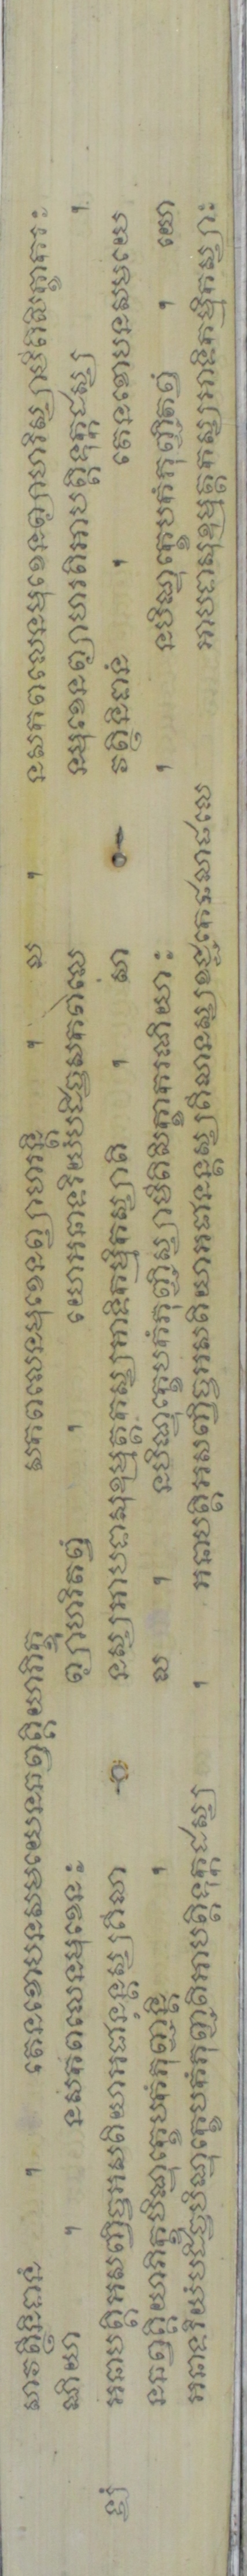 សាវត្ថីនិទានំ ។ តេនខោបនសមយេនឆព្វគ្គិយាភិក្ខូ សកពលេនមុខេនព្យាហរន្តិ ។ ល ។ នសកពលេនមុខេនព្យាហរិស្សាមីតិសិក្ខាករ៖
ណិយា ។ នសកពលេនមុខេន៖ ព្យាហរិតព្វំ ។ យោអនាទរិយំបដិច្ចសកពលេ នមុខេនព្យាហរតិអាបត្តិទុក្កដស្ស ។
ខ្យំ អនាបត្តិអសញ្ចិច្ចអសតិយាអជានន្តស្សគិលា នស្សអាបទាសុឧម្មត្តកស្សអាទិកម្មិកស្សាតិ ។ សា វត្ថិនិទានំ ។ តេនខោបនសមយេ
នឆព្វគ្គិយាភិក្ខូបិណ្ឌុក្ខេបកំភុញ្ជន្តិ ។ ល ។ នបិណ្ឌុក្ខេបកំភុញ្ជិស្សាមីតិសិក្ខាករណិយា៖ ។ នបិណ្ឌុក្ខេបកំភុញ្ជិតព្វំ ។ យោ
អនាទរិយំបដិច្ចបិណ្ឌុក្ខេបកំភុញ្ជតិអាបត្តិទុក្កដស្ស ។ អនាបត្តិអសញ្ចិច្ចអសតិយាអជានន្តស្សគិលានស្សខជ្ជកេផលាផលេ អាបទាសុឧម្មត្តកស្សអាទិកម្មិកស្សា៖